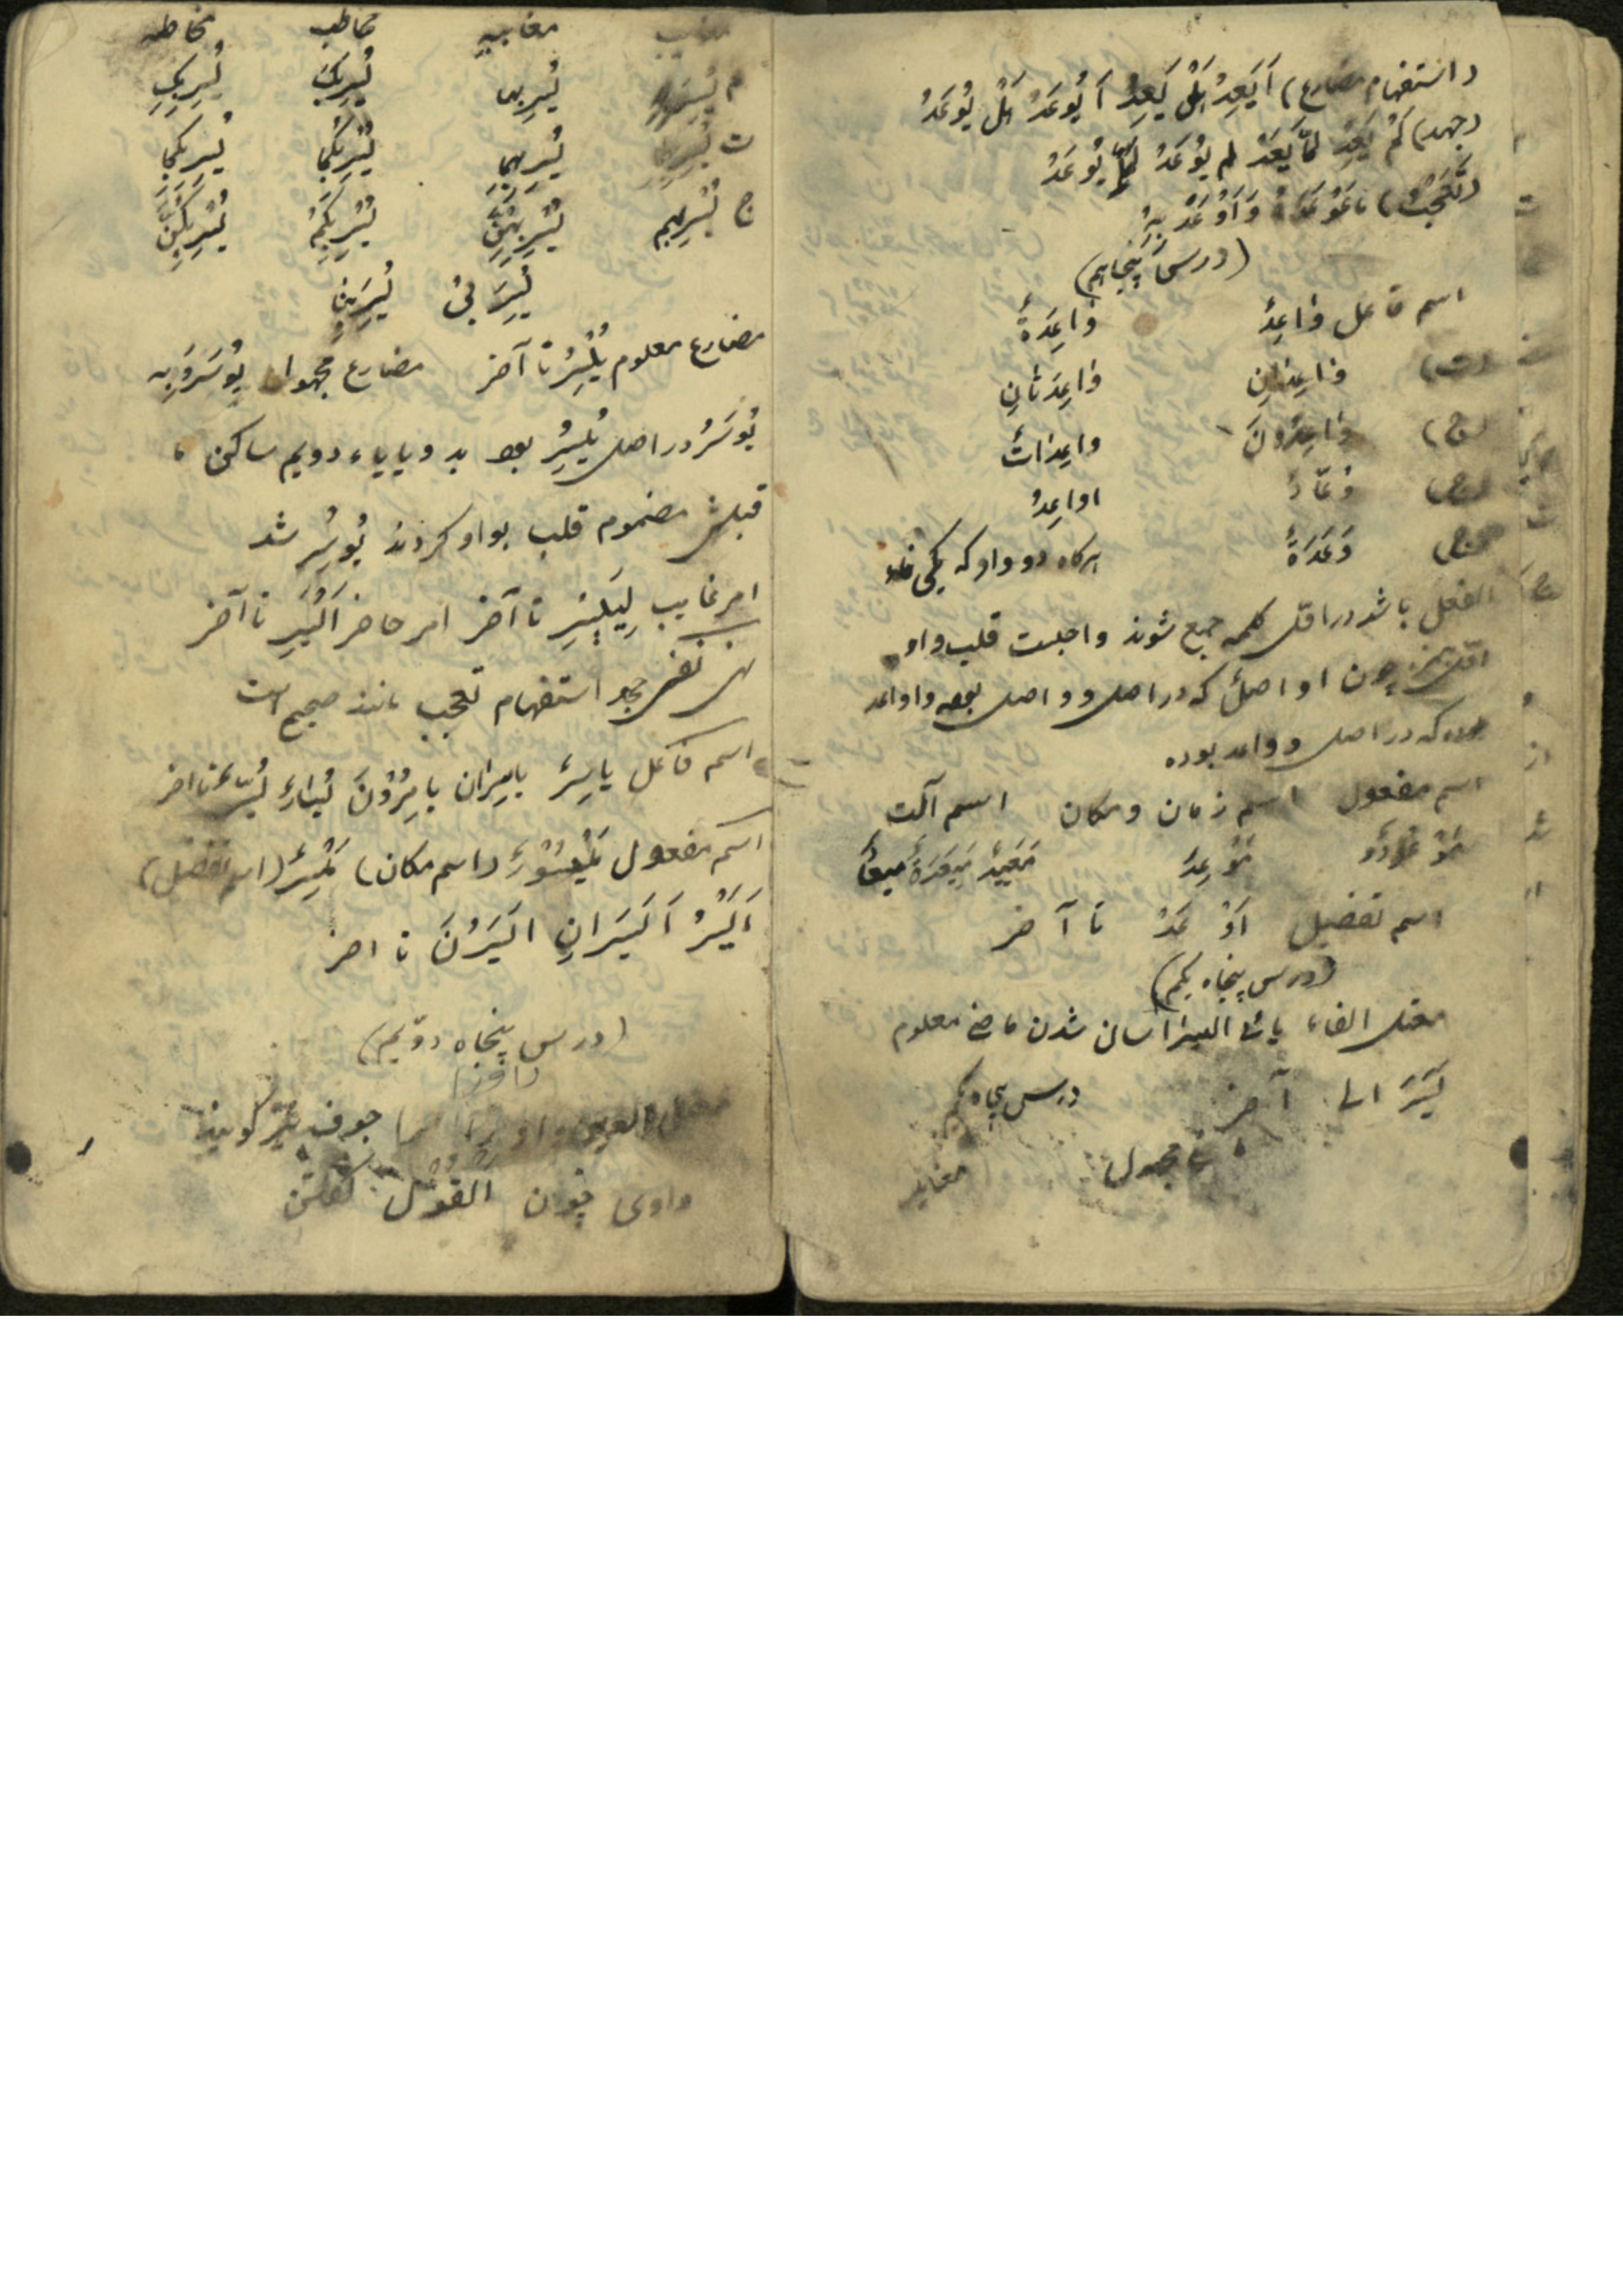 (استفهام مضارع) اَیَعِدُ هَلْ یَعِدُ اَیُوعَدُ هَلْ یُوعَدُ
(جهد) لَمْ یَعِدْ لَمّا یَعِدْ لم یُوعَدْ لَمّا یُوعَدْ
(تعجب) وَاَوْعَدْ بِهِ
(درس پنجاهم)
اسم فاعل وٰاعِدٌ وٰاعِدَةٌ
(ت) وٰاعِدٰانِ وٰاعِدَتٰانِ
(ج) وٰاعِدُونَ واعِدٰاتٌ
وُعّٰادٌ اواعِدُ
وَعَدَةٌ هرکاه دو واو که یکی فاء
الفعل باشد در اوّل کلمه جمع شوند واجبست قلب واو
چون اواصل که در اصل وواصل بوده واواعد
که در اصل وواعد بوده
اسم مفعول اسم زمان ومکان اسم آلت
مَوْعُودٌ مَوْعِدٌ مِیعَدٌ مِیعَدَةٌ میعاد
اسم تفضیل اَوْعَدُ تا آخر
(درس پنجاه یکم)
معتل الفاء یائی الیسر آسان شدن ماضی معلوم
یَسَرَ الی آخر درس پنجاه یکم
مجهول مغایب
مغایبه مخاطب مخاطبه
م یُسِرَ بِهِ یُسِرَ بِها یُسِرَ بِکَ یُسِرَ بِکِ
ت یُسِرَ بِهِما یُسِرَ بِهِما یُسِرَ بِکُما یُسِرَ بِکُما
ج یُسِرَ بِهِم یُسِرَ بِهِنَّ یُسِرَ بِکُمْ یُسِرَ بِکُنَّ
یُسِرَ بی یُسِرَ بِنا
مضارع معلوم یَیْسِرُ تا آخر مضارع مجهول یُوسَرُ بِه
یُوسَرُ در اصل یُیْسَرُ بود بدو یاء یاء دویم ساکن ما
قبلش مضموم قلب بواو کردند یُوسَر شد
امر غایب لِیَیْسِرْ تا آخر امر حاضر اَیْسِرْ تا آخر
نهی نفی جحد استفهام تعجب مانند صحیح است
اسم فاعل یاسِرٌ یاسِرٰان یاسِرُوْنَ یُسّارٌ یُسَّرٌ تا اخر
اسم مفعول مَیْسُوْرٌ (اسم مکان) مَیْسِرٌ (اسم تفضیل)
اَیْسَرُ اَیْسَرانِ ایْسَرُنَ تا اخر
(درس پنجاه دوّیم)
معتل العین واو اجوف نیز گویند
واوی چون اَلْقَوْلُ گفتن